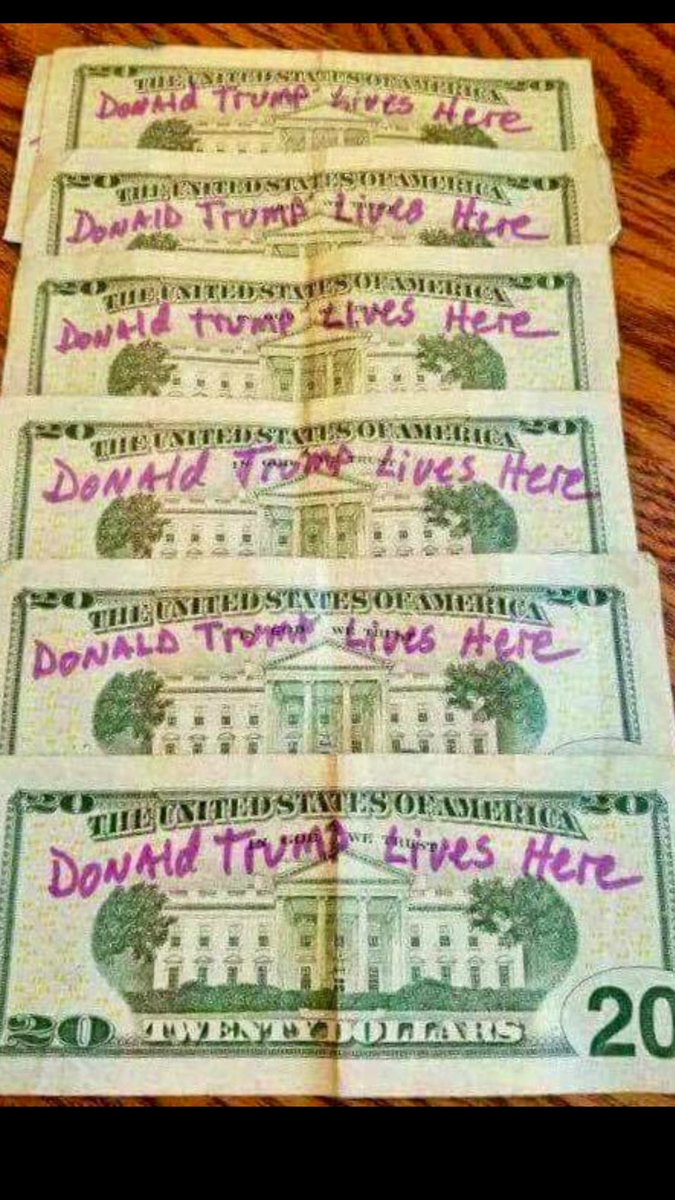 20 THE UNITED STATES OF AMERICA 20
Donald Trump Lives Here
20 THE UNITED STATES OF AMERICA 20
DONALD Trump Lives Here
20 THE UNITED STATES OF AMERICA 20
Donald trump Lives Here
20 THE UNITED STATES OF AMERICA 20
DONAld Trump Lives Here
20 THE UNITED STATES OF AMERICA 20
WE TRUST
DONALD Trump Lives Here
20 THE UNITED STATES OF AMERICA 20
IN GOD WE TRUST
DONAld Trump Lives Here
20 TWENTY DOLLARS 20